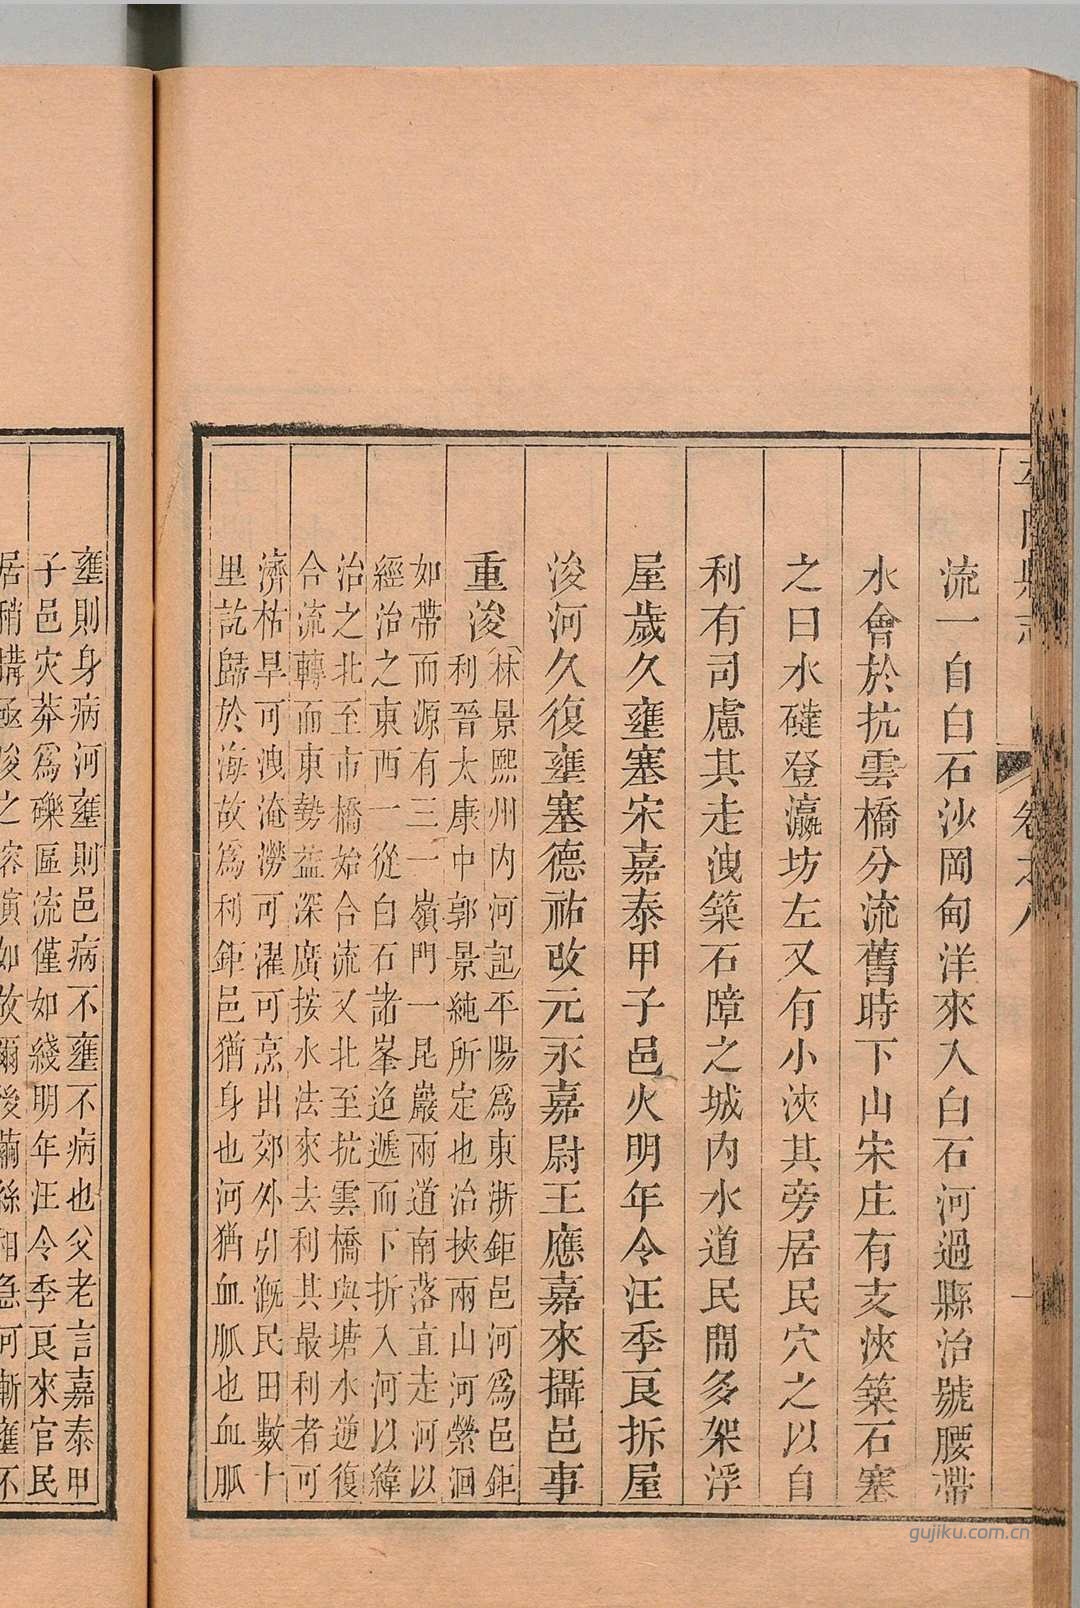 流一自白石沙岡甸洋來入白石河過縣治號腰帶
水會於抗雲橋分流舊時下山宋庄有支浹築石塞
之曰水䃮登瀛坊左又有小浹其旁居民穴之以自
利有司慮其走洩築石障之城内水道民間多架浮
屋歲久壅塞宋嘉泰甲子邑火明年令汪季良拆屋
浚河久復壅塞德祐改元永嘉尉王應嘉來攝邑事
重浚
林景熙州内河記平陽爲東浙鉅邑河爲邑鉅
利晉太康中郭景純所定也治挾兩山河縈洄
如帶而源有三一嶺門一昆巖兩道南落直走河以
經治之東西一從白石諸峯迤遞而下折入河以緯
治之北至市橋始合流又北至抗雲橋與塘水遡復
合流轉而東勢益深廣按水法來去利其最利者可
濟枯旱可洩淹澇可濯可烹出郊外引漑民田數十
里訖歸於海故爲利鉅邑猶身也河猶血脈也血脈
壅則身病河壅則邑病不壅不病也父老言嘉泰甲
子邑灾莽爲礫區流僅如綫明年汪令季良來官民
居稍搆亟浚之容演如故爾後繭絲相急河漸壅不
卷之八
gujiku.com.cn